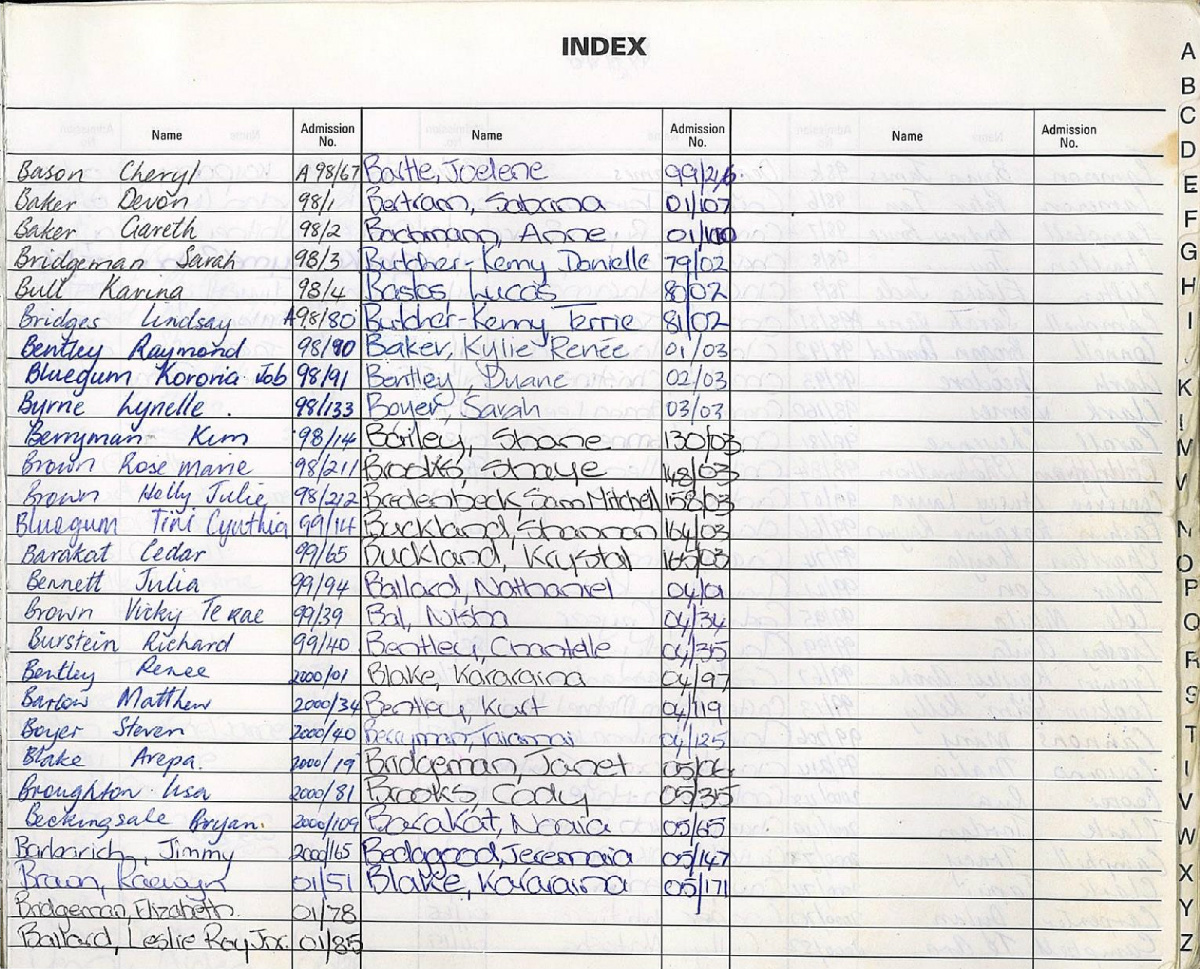 INDEX
Name Admission No. Name Admission No. Name Admission No.
Bason Cheryl A 98/67 Bartle, Joelene 99/216
Baker Devon 98/1 Bertram, Sabrina 01/107
Baker Gareth 98/2 Bachmann, Anne 01/100
Bridgeman Sarah 98/3 Butcher-Kenny Danielle 79/02
Bull Karina 98/4 Bastos, Luccas 80/02
Bridges Lindsay A98/80 Butcher-Kenny Terrie 81/02
Bentley Raymond 98/90 Baker, Kylie Renée 01/03
Bluegum Kororia Job 98/91 Bentley, Duane 02/03
Byrne Lynelle . 98/133 Boyer, Sarah 03/03
Berryman Kim 98/14 Bailey, Shane 130/03
Brown Rose marie 98/211 Brooks, Shaye 148/03
Brown Holly Julie 98/212 Bredenbeck, Sam Mitchell 158/03
Bluegum Tini Cynthia 99/14 Buckland, Shannon 164/03
Barakat Cedar 99/65 Buckland, Krystal 165/03
Bennett Julia 99/94 Ballard, Nathaniel 04/01
Brown Vicky Te rae 99/39 Bal, Nisha 04/34
Burstein Richard 99/40 Bentley, Chantelle 04/35
Bentley Renee 2000/01 Blake, Kararaina 04/97
Barlow Matthew 2000/34 Bentley, Kurt 04/119
Boyer Steven 2000/40 Berryman, 04/125
Blake Arepa. 2000/19 Bridgeman, Janet 05/06
Broughton Lisa 2000/81 Brooks Cody 05/35
Beckingsale Bryan. 2000/109 Barakat, Naaia 05/65
Barbarich, Jimmy 2000/65 Bedogood, Jeremaia 05/147
Brown, Raewyn 01/51 Blake, Kararaina 05/171
Bridgeman, Elizabeth. 01/78
Ballard, Leslie Ray Jnr. 01/85
A
B
C
D
E
F
G
H
I
K
M
V
N
O
P
Q
R
S
T
V
W
X
Y
Z